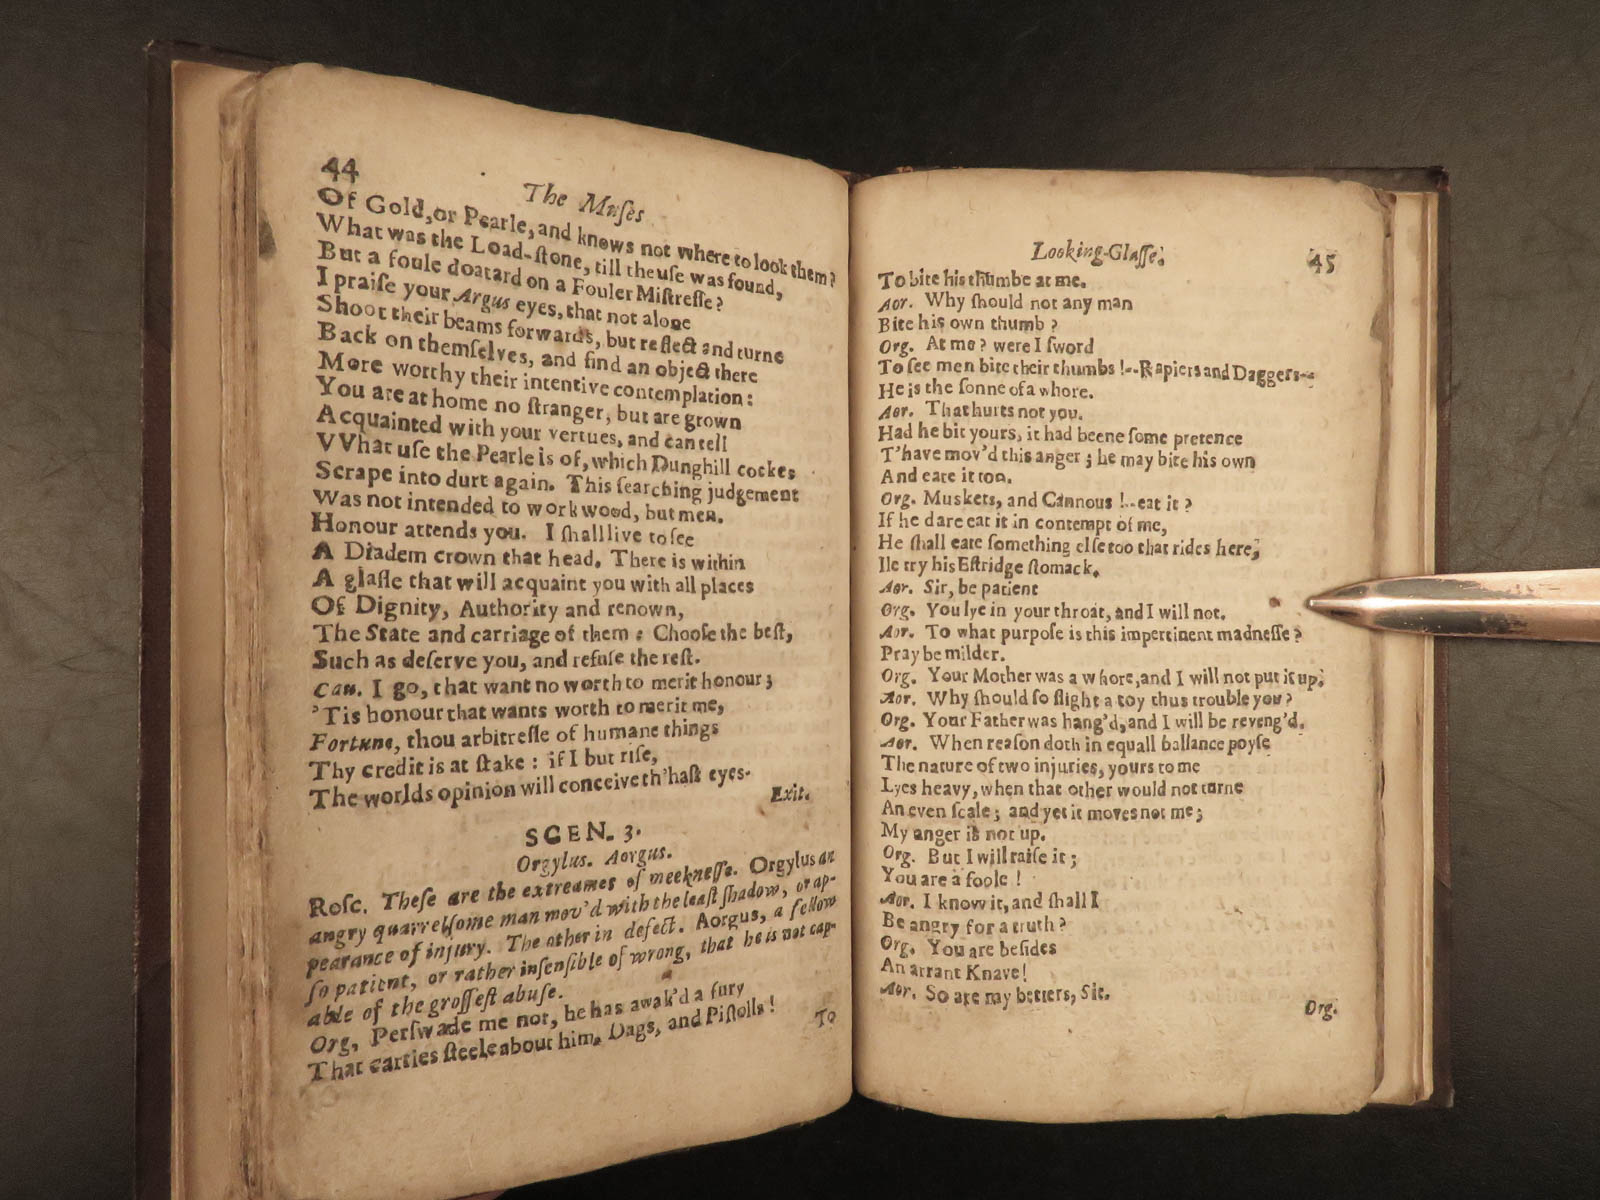 44
The Muſes
Of Gold, or Pearle, and knows not where to look them?
What was the Load-ſtone, till the uſe was found,
But a foule doatard on a Fouler Miſtreſſe?
I praiſe your Argus eyes, that not alone
Shoot their beams forwards, but reflect and turne
Back on themſelves, and find an object there
More worthy their intentive contemplation:
You are at home no ſtranger, but are grown
Acquainted with your vertues, and can tell
VVhat uſe the Pearle is of, which Dunghill cockes
Scrape into durt again. This ſearching judgement
Was not intended to work wood, but men.
Honour attends you. I ſhall live to ſee
A Diadem crown that head. There is within
A glaſſe that will acquaint you with all places
Of Dignity, Authority and renown,
The State and carriage of them: Chooſe the beſt,
Such as deſerve you, and refuſe the reſt.
Cau. I go, that want no worth to merit honour;
'Tis honour that wants worth to merit me,
Fortune, thou arbitreſſe of humane things
Thy credit is at ſtake: if I but riſe,
The worlds opinion will conceive th'haſt eyes.
Exit.
SCEN. 3.
Orgylus. Aorgus.
Roſc. Theſe are the extreames of meekneſſe. Orgylus an
angry quarrelſome man mov'd with the leaſt ſhadow, or ap-
pearance of injury. The other in defect. Aorgus, a fellow
ſo patient, or rather inſenſible of wrong, that he is not cap-
able of the groſſeſt abuſe.
Org, Perſwade me not, he has awak'd a fury
That carries ſteele about him. Dags, and Piſtolls!
To
Looking-Glaſſe.
45
To bite his thumbe at me.
Aor. Why ſhould not any man
Bite his own thumb?
Org. At me? were I ſword
To ſee men bite their thumbs!--Rapiers and Daggers--
He is the ſonne of a whore.
Aor. That hurts not you.
Had he bit yours, it had beene ſome pretence
T'have mov'd this anger; he may bite his own
And eate it too.
Org. Muskets, and Cannous!--eat it?
If he dare eat it in contempt of me,
He ſhall eate ſomething elſe too that rides here;
Ile try his Eſtridge ſtomack.
Aor. Sir, be patient
Org. You lye in your throat, and I will not.
Aor. To what purpoſe is this impertinent madneſſe?
Pray be milder.
Org. Your Mother was a whore, and I will not put it up.
Aor. Why ſhould ſo ſlight a toy thus trouble you?
Org. Your Father was hang'd, and I will be reveng'd.
Aor. When reaſon doth in equall ballance poyſe
The nature of two injuries, yours to me
Lyes heavy, when that other would not turne
An even ſcale; and yet it moves not me;
My anger is not up.
Org. But I will raiſe it;
You are a foole!
Aor. I know it, and ſhall I
Be angry for a truth?
Org. You are beſides
An arrant Knave!
Aor. So are my betters, Sir.
Org.